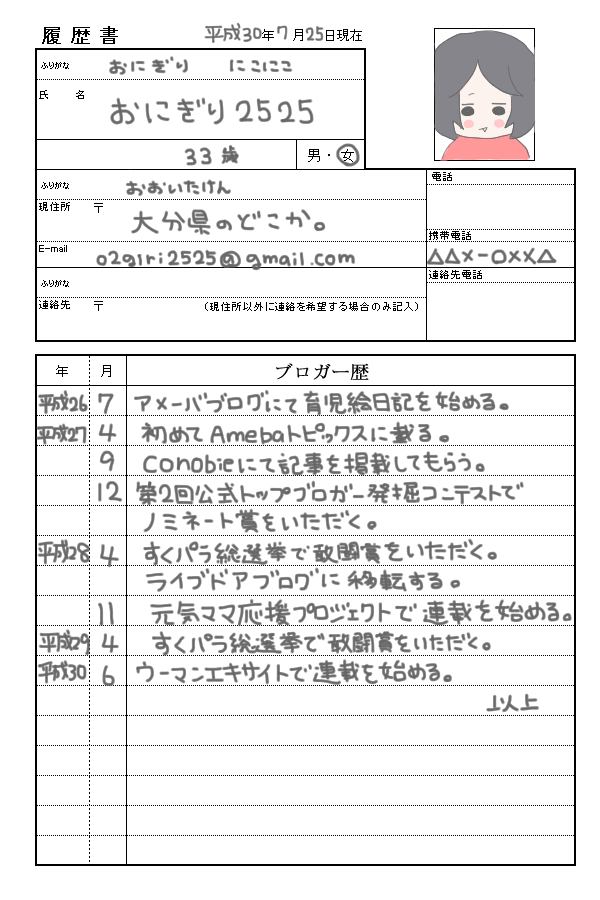 履歴書
平成30年7月25日現在
ふりがな おにぎり にこにこ
氏 名 おにぎり2525
33歳 男・女
ふりがな おおいたけん
電話
現住所 〒 大分県のどこか。
携帯電話
E-mail o2giri2525@gmail.com
△△×-○××△
ふりがな
連絡先電話
連絡先 〒 (現住所以外に連絡を希望する場合のみ記入)
年 月 ブロガー歴
平成26 7 アメーバブログにて育児絵日記を始める。
平成27 4 初めてAmebaトピックスに載る。
9 conobieにて記事を掲載してもらう。
12 第2回公式トップブロガー発掘コンテストで
ノミネート賞をいただく。
平成28 4 すくパラ総選挙で敢闘賞をいただく。
ライブドアブログに移転する。
11 元気ママ応援プロジェクトで連載を始める。
平成29 4 すくパラ総選挙で敢闘賞をいただく。
平成30 6 ウーマンエキサイトで連載を始める。
以上